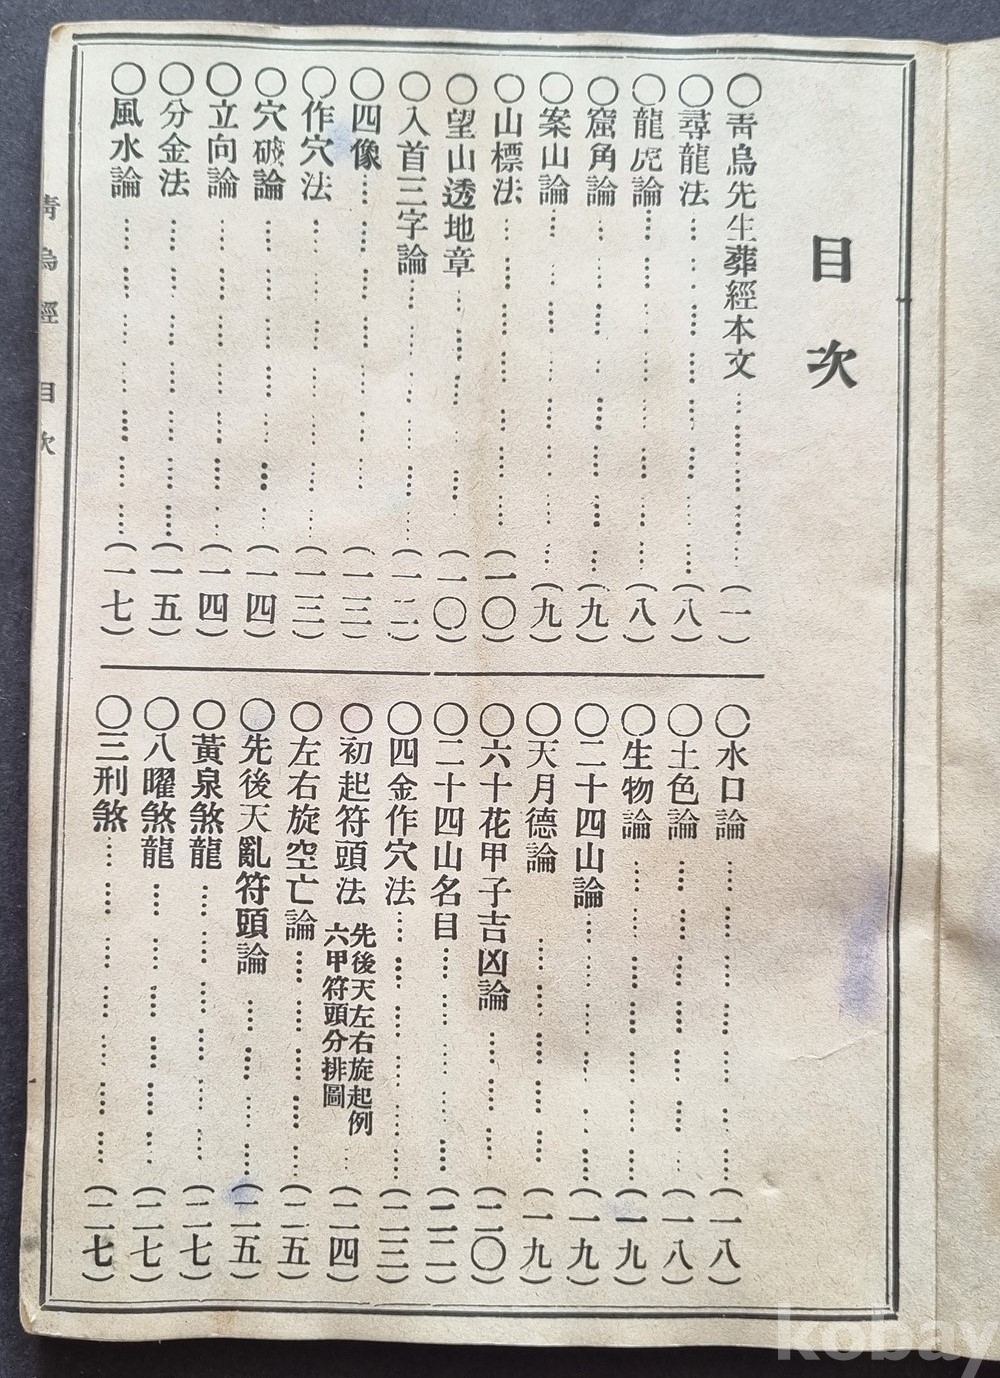 目次
○靑烏先生葬經本文………(一)
○尋龍法………(八)
○龍虎論………(八)
○窟角論………(九)
○案山論………(九)
○山標法………(一〇)
○望山透地章………(一〇)
○入首三字論………(一二)
○四像………(一三)
○作穴法………(一三)
○穴破論………(一四)
○立向論………(一四)
○分金法………(一五)
○風水論………(一七)
○水口論………(一八)
○土色論………(一八)
○生物論………(一九)
○二十四山論………(一九)
○天月德論………(一九)
○六十花甲子吉凶論………(二〇)
○二十四山名目………(二二)
○四金作穴法………(二三)
○初起符頭法 先後天左右旋起例 六甲符頭分排圖…(二四)
○左右旋空亡論………(二五)
○先後天亂符頭論………(二五)
○黃泉煞龍………(二七)
○八曜煞龍………(二七)
○三刑煞………(二七)
靑烏經 目次
kobay